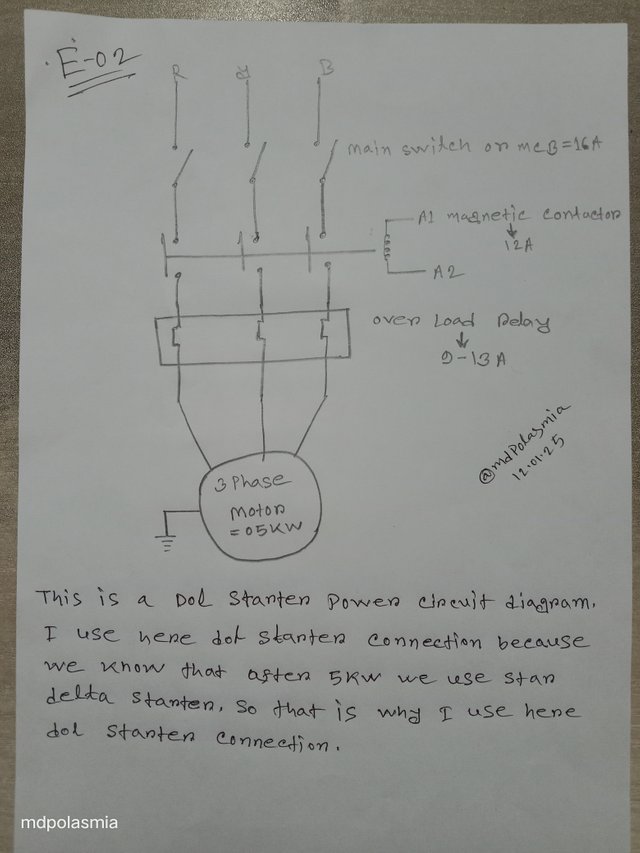 E-02
R Y B
main switch or mcB=16A
A1 magnetic contactor
12A
A2
over Load Relay
9-13A
3 Phase
Motor
=05KW
@mdpolasmia
12.01.25
This is a Dol Starter Power circuit diagram.
I use here dol starter connection because
we know that after 5KW we use star
delta starter, So that is why I use here
dol starter connection.
mdpolasmia